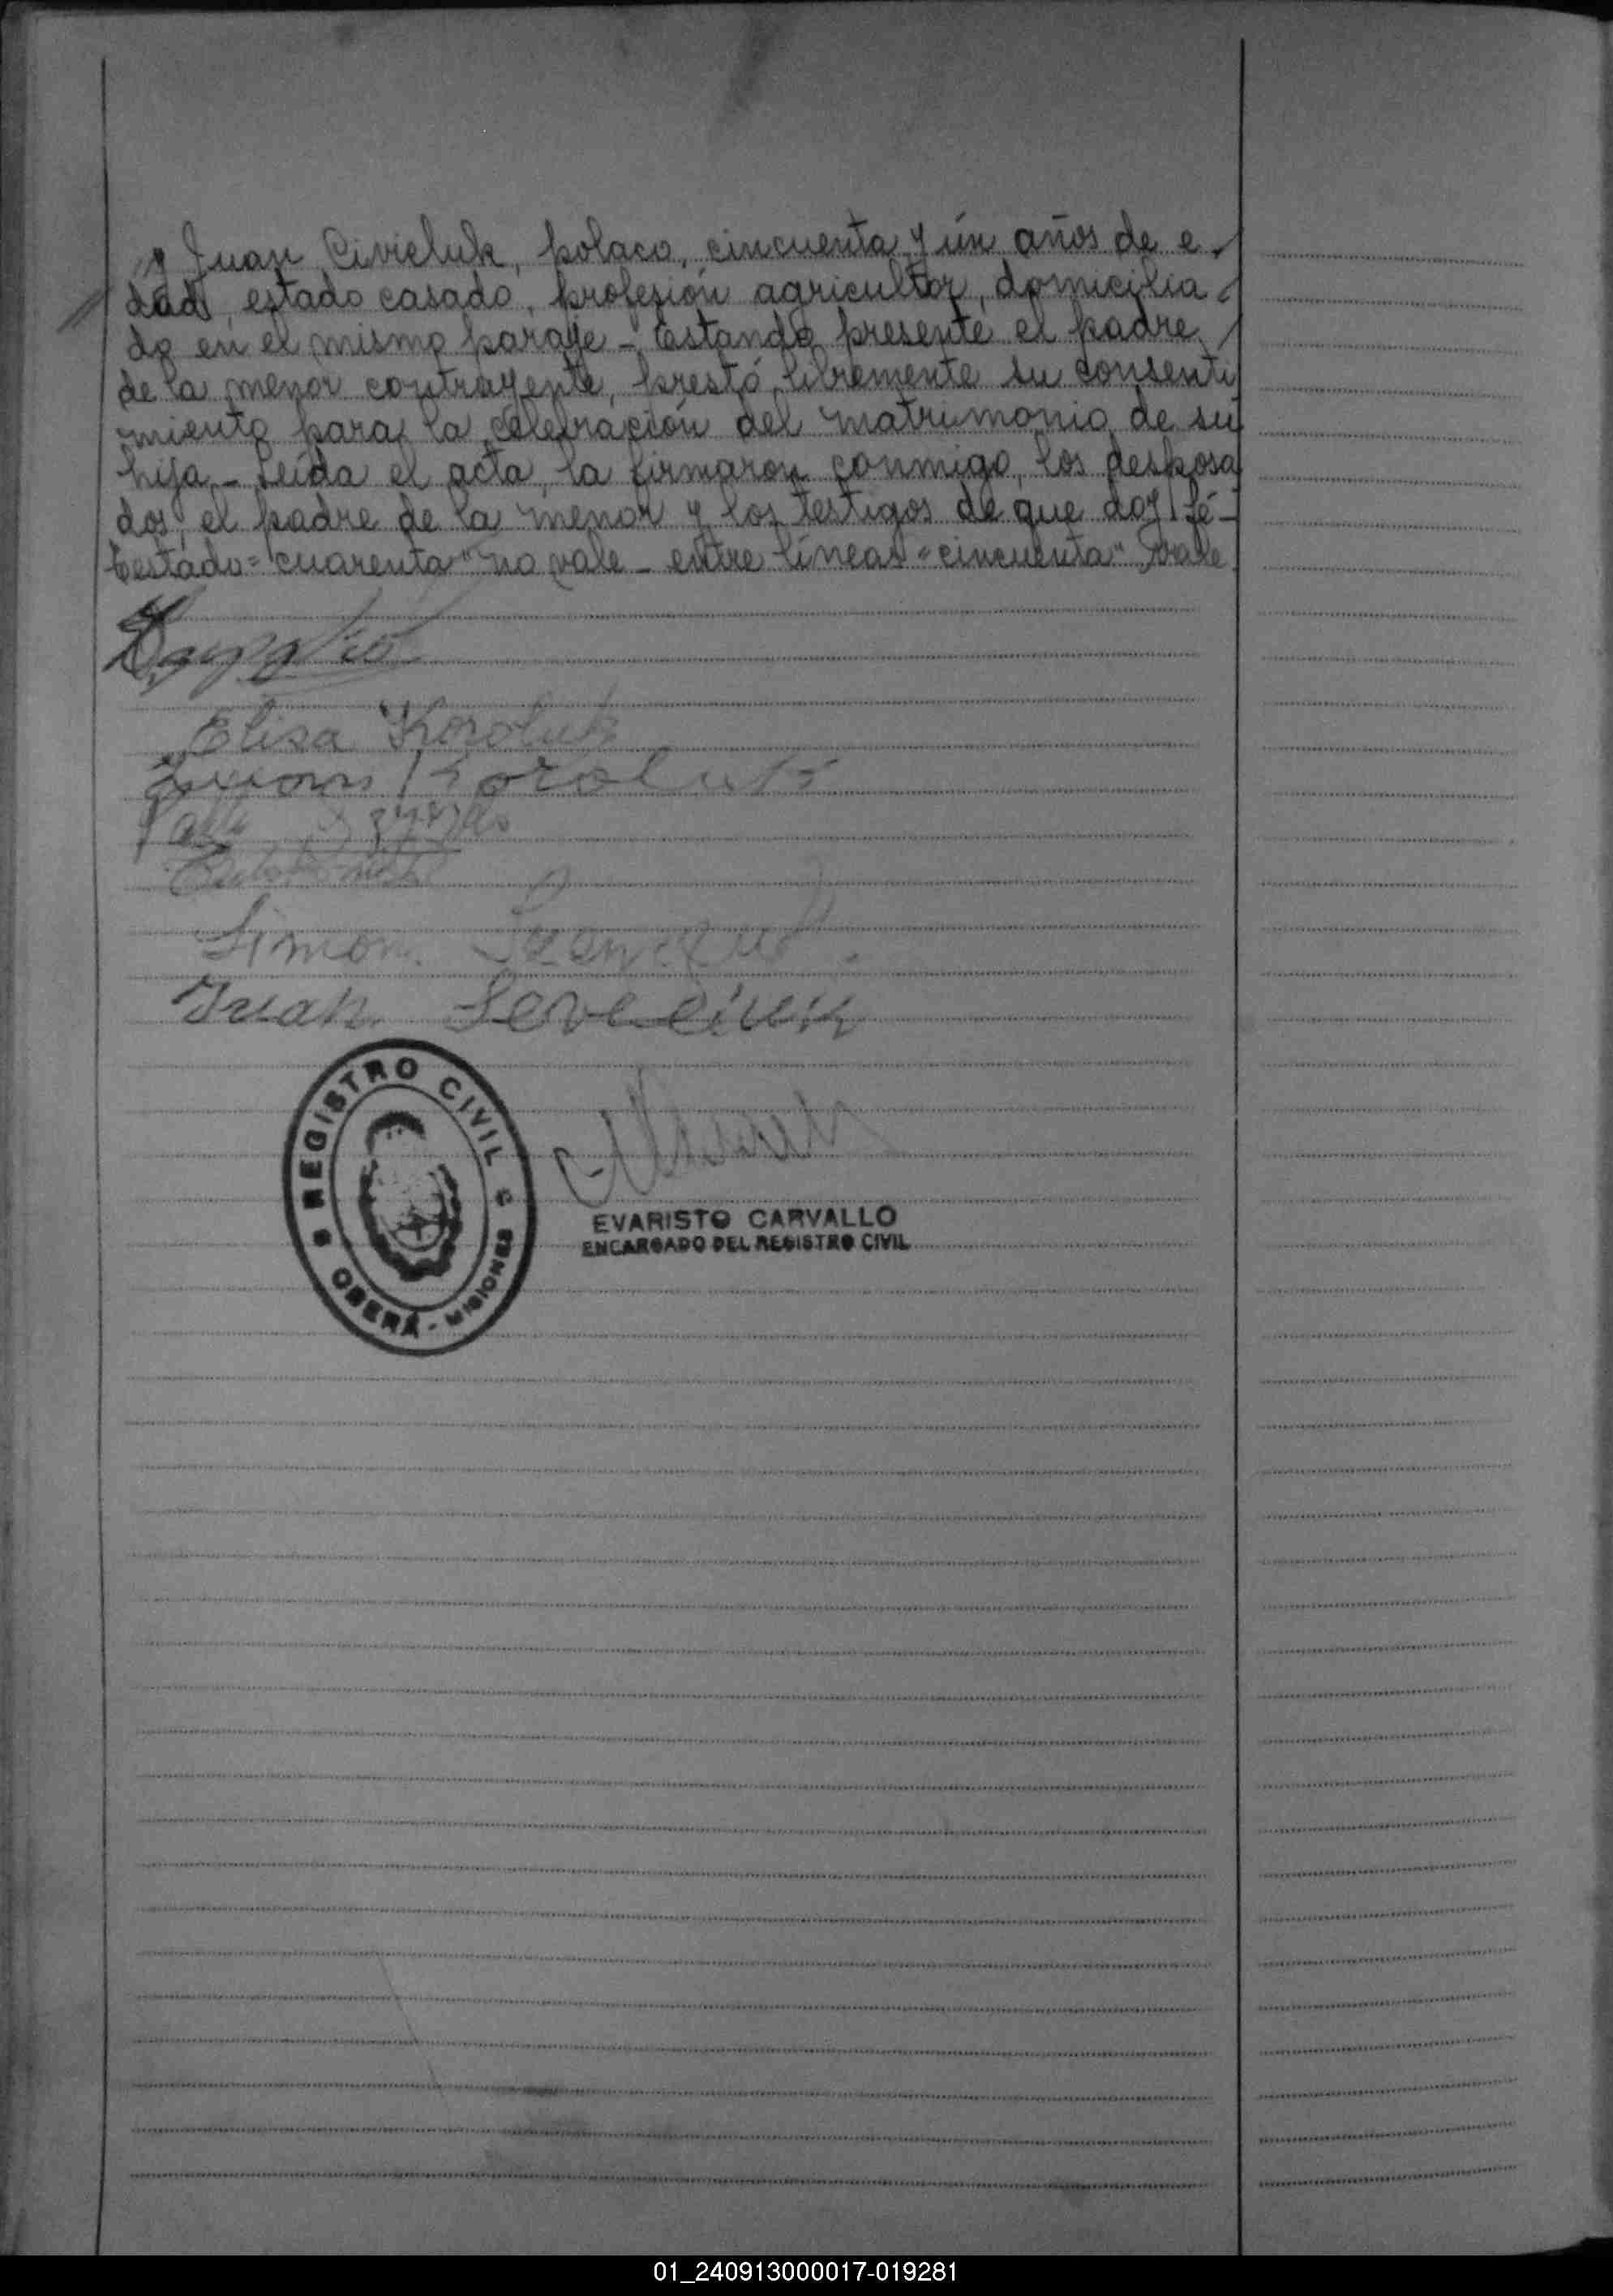 y Juan Civieluk, polaco, cincuenta y un años de e
dad, estado casado, profesión agricultor, domicilia
do en el mismo paraje – Estando presente el padre
de la menor contrayente, prestó libremente su consenti
miento para la celebración del matrimonio de su
hija – Leída el acta, la firmaron conmigo, los desposa
dos, el padre de la menor y los testigos de que doy fé –
Testado = "cuarenta" no vale – entre líneas "cincuenta" vale
Elisa Koroluk
Koroluk
Simon
Juan
REGISTRO CIVIL
OBERÁ - MISIONES
EVARISTO CARVALLO
ENCARGADO DEL REGISTRO CIVIL
01_240913000017-019281